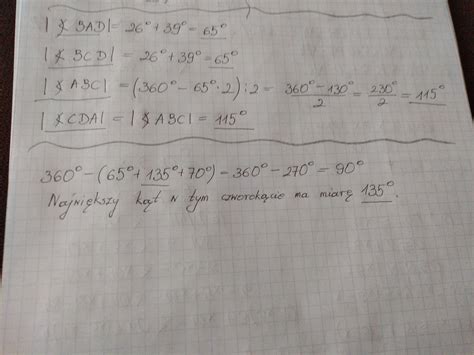 |∢ BAD| = 26° + 39° = 65°
|∢ BCD| = 26° + 39° = 65°
|∢ ABC| = (360° - 65° · 2) : 2 = 360° - 130° / 2 = 230° / 2 = 115°
|∢ CDA| = |∢ ABC| = 115°
360° - (65° + 135° + 70°) - 360° - 270° = 90°
Największy kąt w tym czworokącie ma miarę 135°.